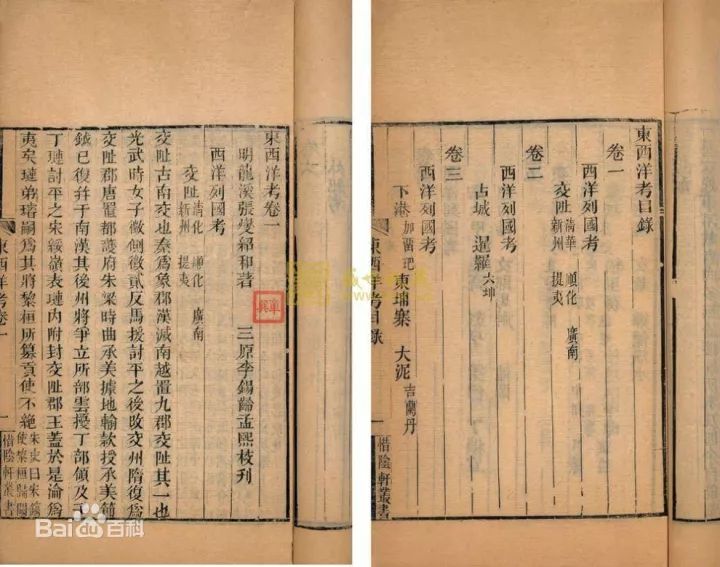 東西洋考目錄
卷一
西洋列國考
交阯 清華 順化 廣南
新州 提夷
卷二
西洋列國考
占城 暹羅 六坤
卷三
西洋列國考
下港 加留𠯗 柬埔寨 大泥 吉蘭丹
東西洋考目錄
惜陰軒叢書
東西洋考卷一
明龍溪張燮紹和著 三原李錫齡孟熙校刊
西洋列國考
交阯 清化 順化 廣南
新州 提夷
交阯古南交也秦爲象郡漢滅南越置九郡交阯其一也
光武時女子徵側徵貳反馬援討平之後改交州隋復爲
交阯郡唐置都護府朱梁時曲承美據地輸款授承美節
鉞已復幷于南漢其後州將爭立所部雲擾丁部領及子
丁璉討平之宋綏嶺表璉內附封交阯郡王蓋於是淪爲
夷矣璉弟璿嗣爲其將黎桓所篡貢使不絕
東西洋考卷一
一
惜陰軒叢書
Baidu百科